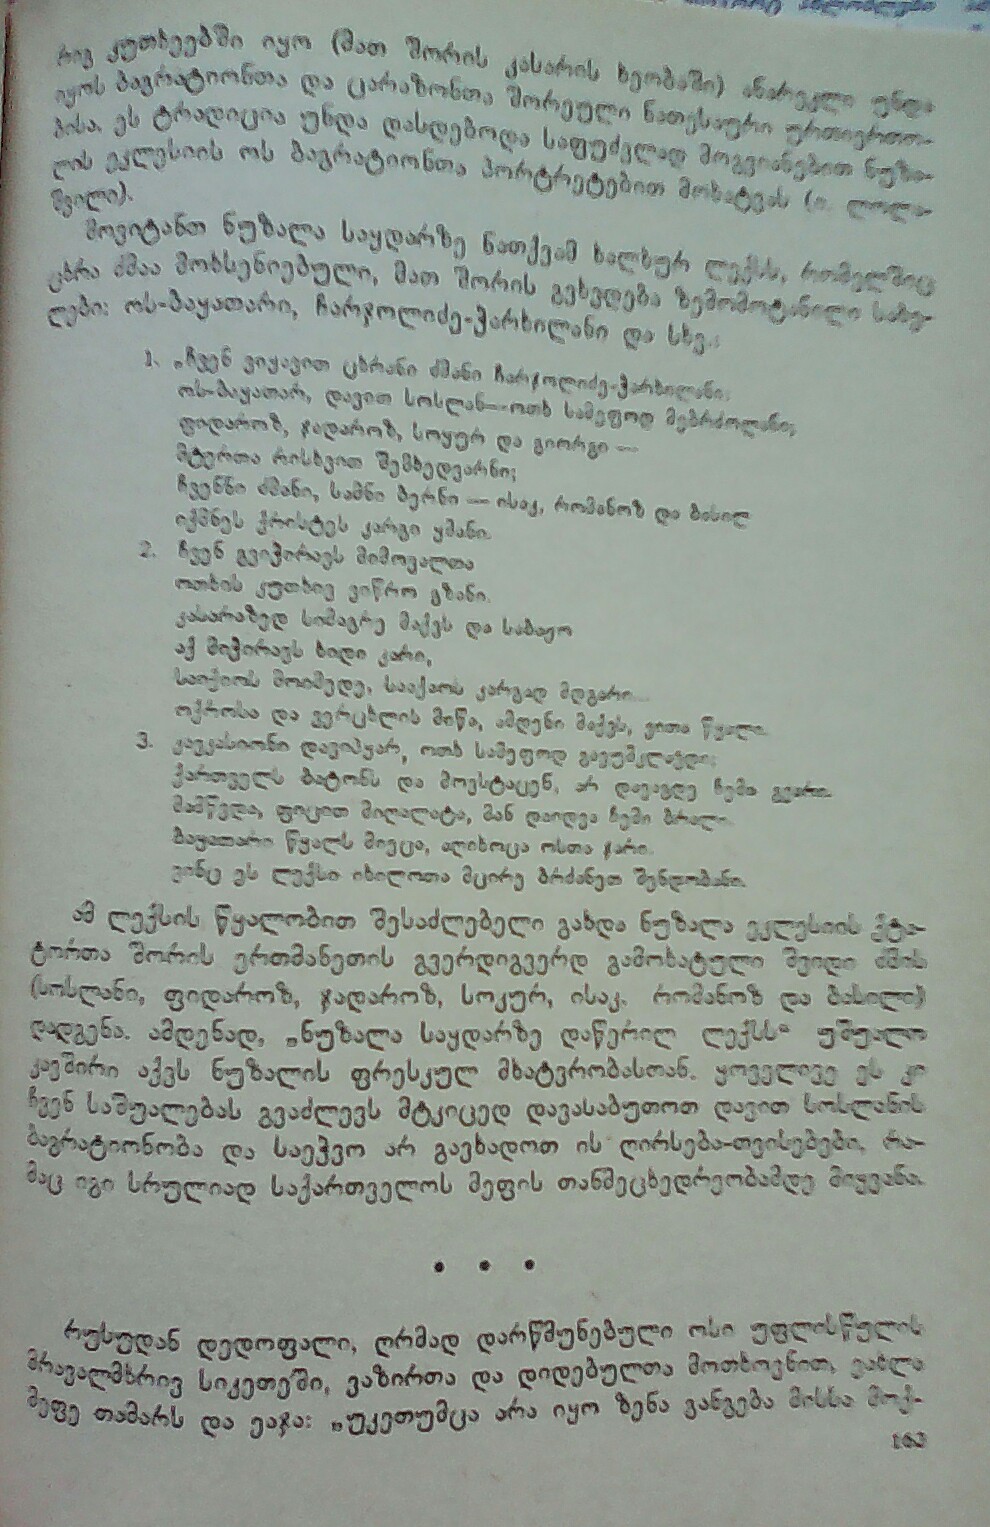 რიგ კუთხეებში იყო (მათ შორის კასარის ხეობაში) ანარეკლი უნდა
იყოს ბაგრატიონთა და ცარაზონთა შორეული ნათესაური ურთიერთო-
ბისა. ეს ტრადიცია უნდა დასდებოდა საფუძვლად მოგვიანებით ნუზა-
ლის ეკლესიის ოს ბაგრატიონთა პორტრეტებით მოხატვას (ი. ლოლა-
შვილი).
მოვიტანთ ნუზალა საყდარზე ნათქვამ ხალხურ ლექსს, რომელშიც
ცხრა ძმაა მოხსენიებული, მათ შორის გვხვდება ზემომოტანილი სახე-
ლები: ოს-ბაყათარი, ჩარჯოლიძე-ჭარხილანი და სხვ.:
1. „ჩვენ ვიყავით ცხრანი ძმანი ჩარჯოლიძე-ჭარხილანი,
ოს-ბაყათარ, დავით სოსლან—ოთხ სამეფოდ მებრძოლანი,
ფიდაროზ, ჯადაროზ, სოყურ და გიორგი —
მტერთა რისხვით შემხედვარნი;
ჩვენნი ძმანი, სამნი ბერნი — ისაკ, რომანოზ და ბასილ
იქმნეს ქრისტეს კარგი ყმანი.
2. ჩვენ გვიჭირავს მიმოვალთა
ოთხის კუთხივ ვიწრო გზანი.
კასარაზედ სიმაგრე მაქვს და საბაჟო
აქ მიჭირავს ხიდი კარი,
საიქიოს მოიმედე, სააქაოს კარგად მდგარი...
ოქროსა და ვერცხლის მიწა, ამდენი მაქვს, ვითა წყალი.
3. კავკასიონი დავიპყარ, ოთხ სამეფოდ გავუმკლავდი;
ქართველს ბატონს და მოვსტაცენ, არ დავაგდე ჩემი გვარი.
მამწვდა, ფიცით მიღალატა, მან დაიდვა ჩემი ბრალი.
ბაყათარი წყალს მიეცა, აღიხოცა ოსთა ჯარი.
ვინც ეს ლექსი იხილოთა მცირე ბრძანეთ შენდობანი.
ამ ლექსის წყალობით შესაძლებელი გახდა ნუზალა ეკლესიის ქტი-
ტორთა შორის ერთმანეთის გვერდიგვერდ გამოხატული შვიდი ძმის
(სოსლანი, ფიდაროზ, ჯადაროზ, სოკურ, ისაკ, რომანოზ და ბასილი)
დადგენა. ამდენად, „ნუზალა საყდარზე დაწერილ ლექსს“ უშუალო
კავშირი აქვს ნუზალის ფრესკულ მხატვრობასთან. ყოველივე ეს კი
ჩვენ საშუალებას გვაძლევს მტკიცედ დავასაბუთოთ დავით სოსლანის
ბაგრატიონობა და საეჭვო არ გავხადოთ ის ღირსება-თვისებები, რა-
მაც იგი სრულიად საქართველოს მეფის თანმეცხედრეობამდე მიყვანა.
• • •
რუსუდან დედოფალი, ღრმად დარწმუნებული ოსი უფლისწულის
მრავალმხრივ სიკეთეში, ვაზირთა და დიდებულთა მოთხოვნით, ეახლა
მეფე თამარს და ეაჯა: „უკეთუმცა არა იყო ზენა განგება მისსა მოქ-
163